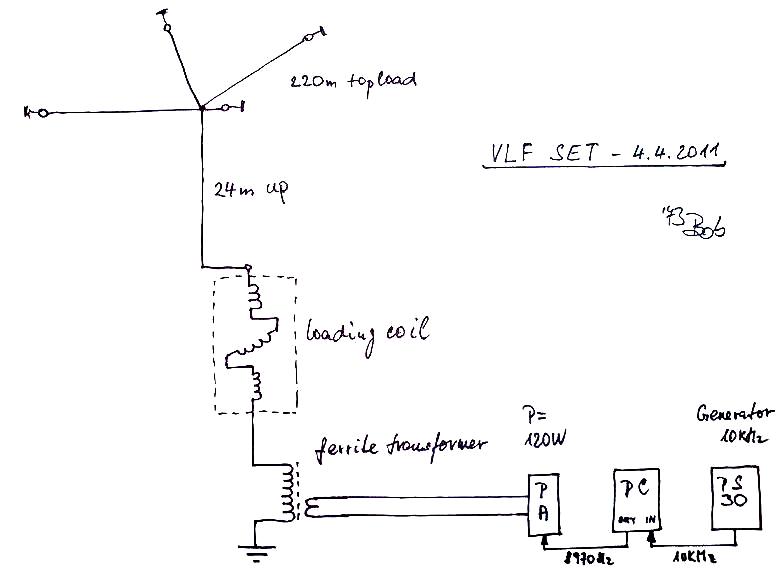 220m topload
VLF SET - 4.4.2011
24m up
'73 Bob
loading coil
P=
120W
Generator
10KHz
ferrite transformer
P
A
PC
IN
PS
30
8970Hz
10KHz